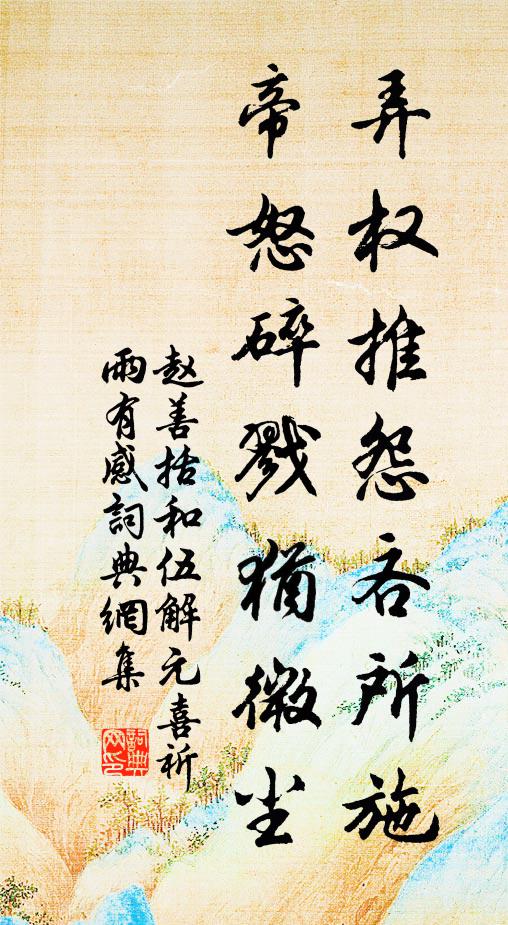 弄权推怨吝所施
帝怒碎戮犹微尘
赵善括和伍解元喜祈
雨有感詞典網集
詞典网印